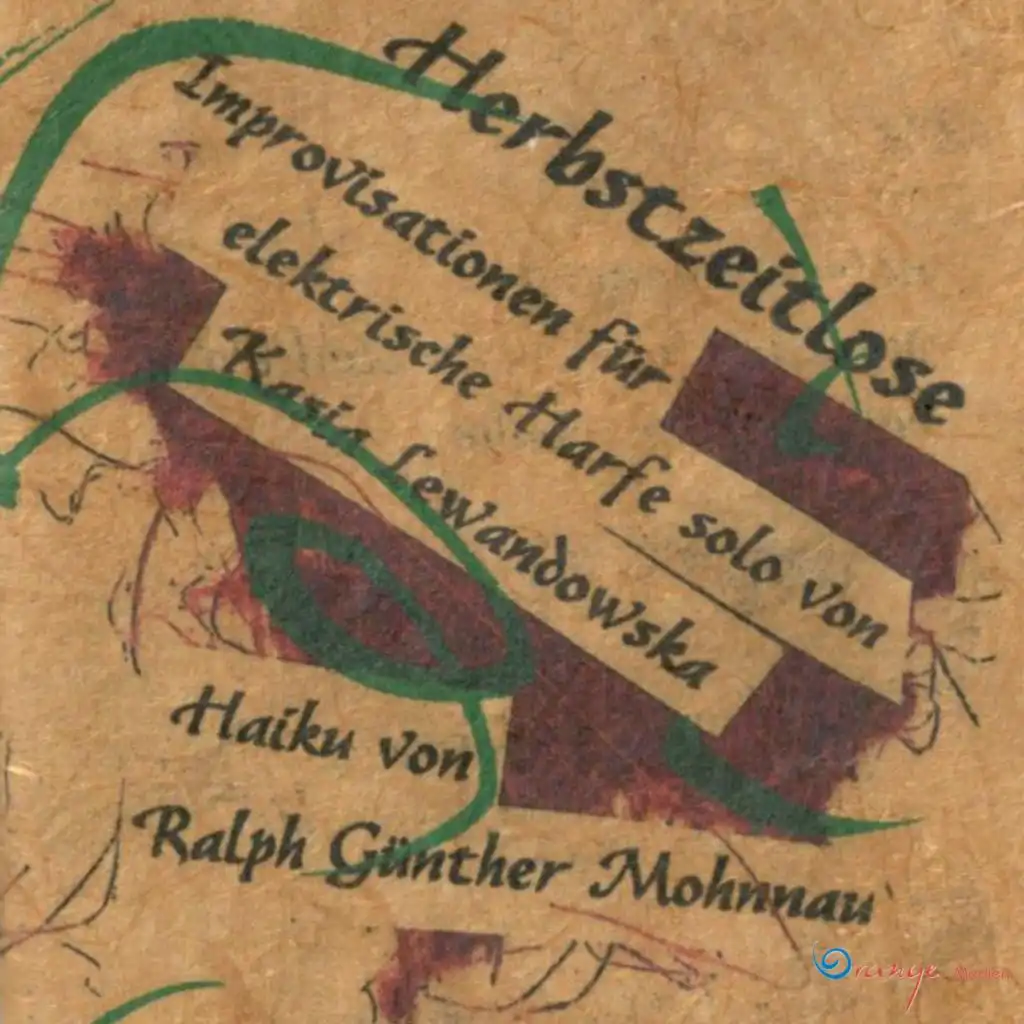 Herbstzeitlose
Improvisationen für
elektrische Harfe solo von
Kasia Lewandowska
Haiku von
Ralph Günther Mohnnau
Orange Medien